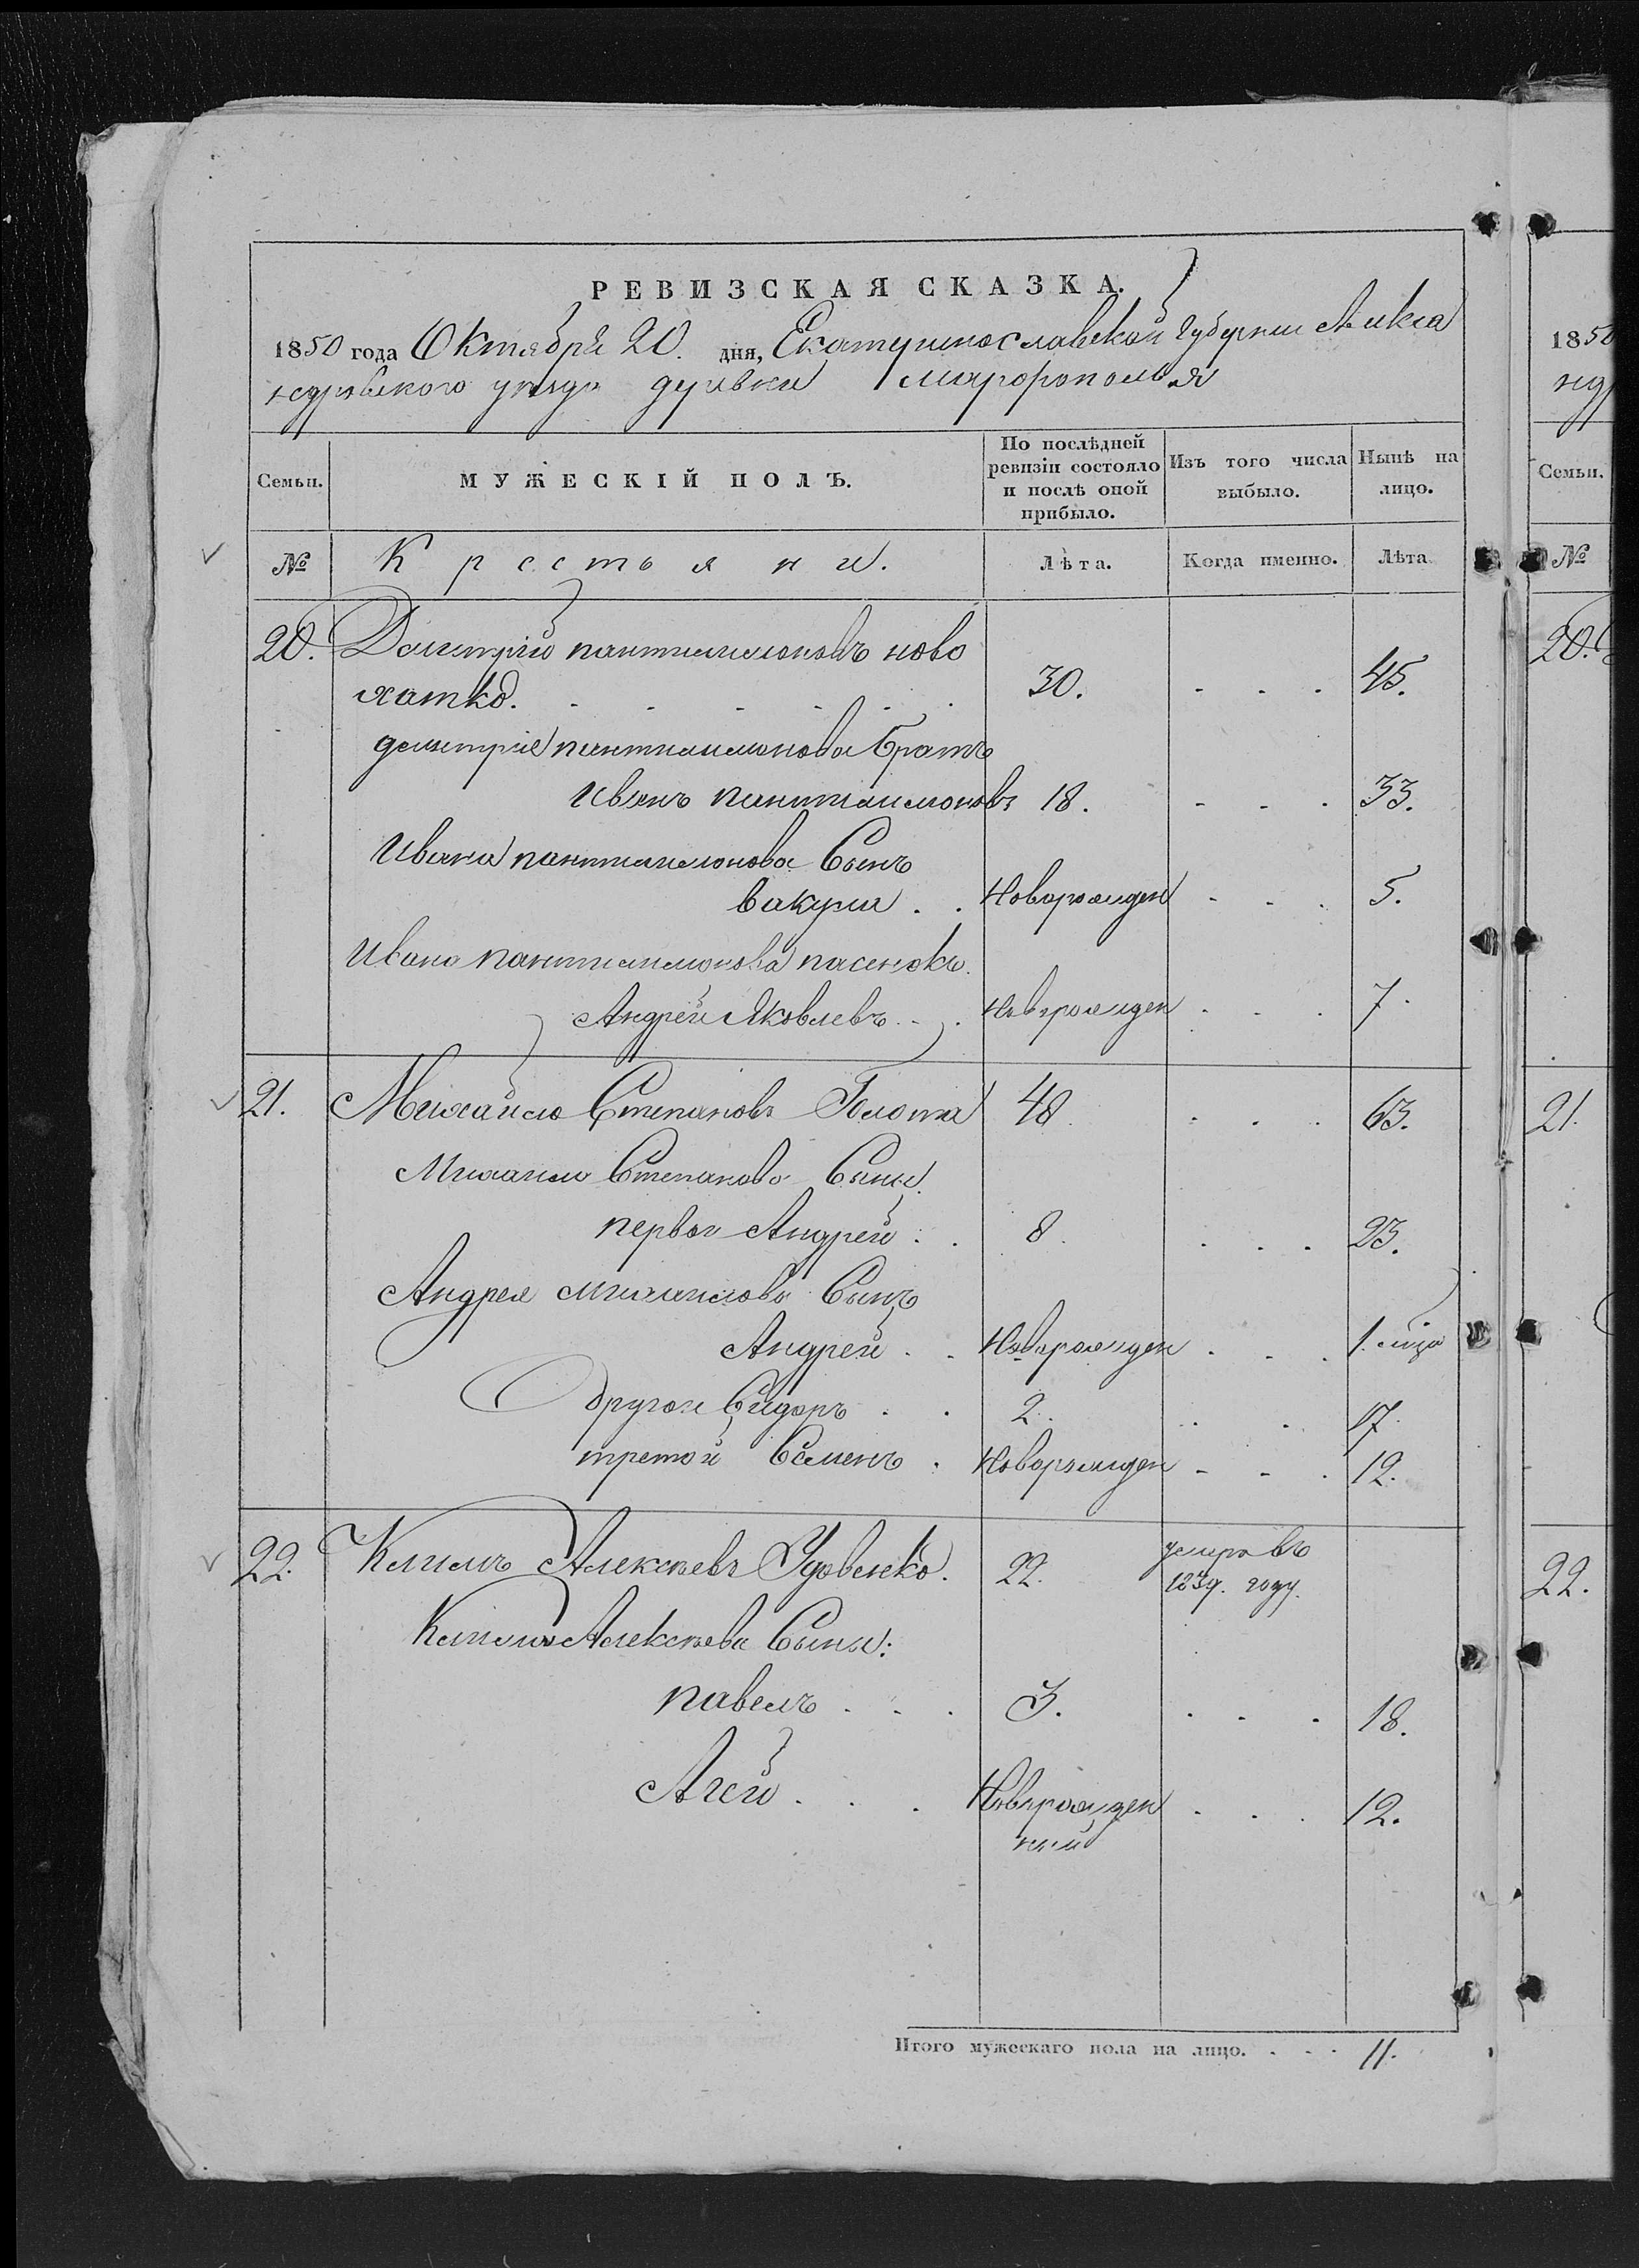 РЕВИЗСКАЯ СКАЗКА.
1850 года Октября 20. дня, Екатеринославской Губернии Алекса
ндровского уезда деревни
Семьи. МУЖЕСКІЙ ПОЛЪ. По послѣдней ревизіи состояло и послѣ оной прибыло. Изъ того числа выбыло. Нынѣ на лицо.
№ Крестьяни. Лѣта. Когда именно. Лѣта
20. Дмитрій пантилимоновъ ново
хатко. 30. 45.
дмитрие пантилимонова братъ
Иванъ пантилимоновъ 18. 33.
Ивана пантилимонова Сынъ
вакула Новорожден 5.
Ивана пантилимонова пасинокъ
Андрей Яковлевъ Новорожден 7.
21. Михайло Степановъ Голота 48. 63.
Михаила Степанова Сыны
первой Андрей 8. 23.
Андрея михаилова Сынъ
Андрей Новорожден 1.
другой Сидоръ 2. 17.
третой Семенъ Новорожден 12.
22. Алексѣевъ Удовенко. 22. умеръ въ
1839. году.
Алексѣева Сыны:
павелъ 3. 18.
Агей Новорожден
ный 12.
Итого мужескаго пола на лицо. 11.
1850
Семьи.
№
20.
21.
22.